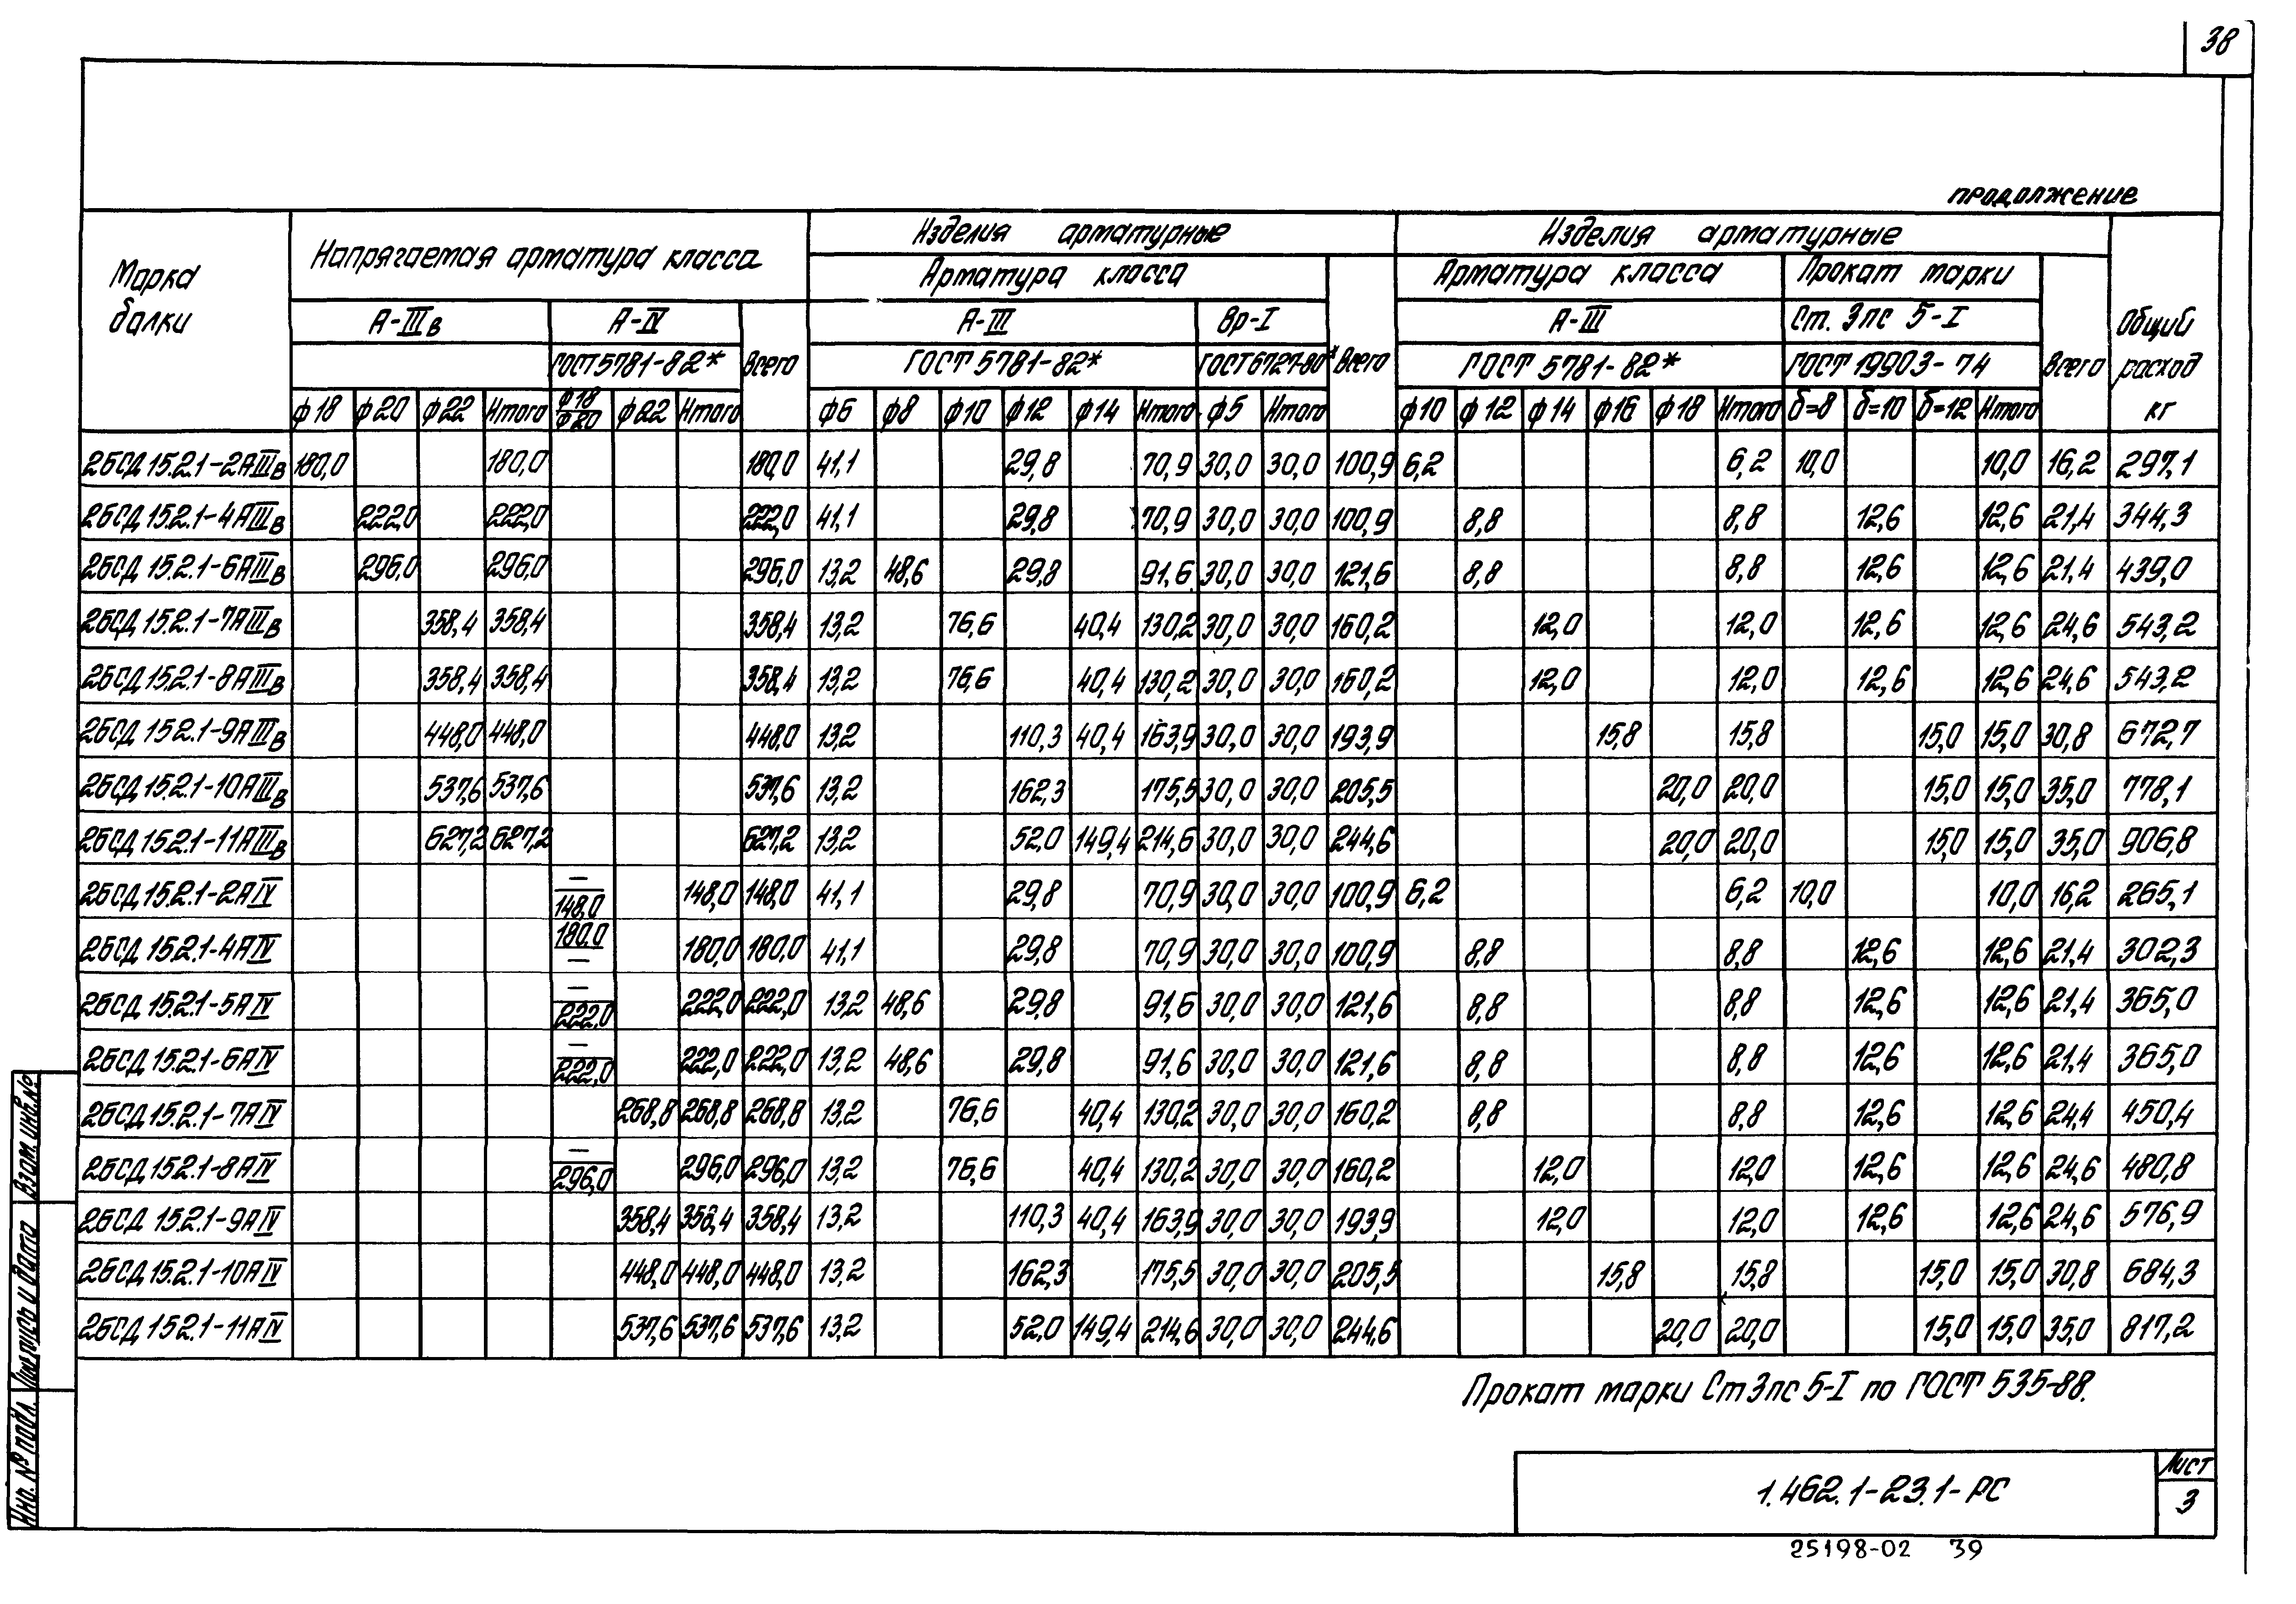 38
продолжение
Марка балки | Напрягаемая арматура класса | Изделия арматурные | Изделия арматурные | Общий расход кг
Арматура класса | Всего | Арматура класса | Прокат марки | Всего
А-IIIв | А-IV | Всего | А-III | Вр-I | А-III | Ст. 3пс 5-I
ГОСТ 5781-82* | ГОСТ 5781-82* | ГОСТ 6727-80* | ГОСТ 5781-82* | ГОСТ 19903-74
ф18 | ф20 | ф22 | Итого | ф18/ф20 | ф22 | Итого | ф6 | ф8 | ф10 | ф12 | ф14 | Итого | ф5 | Итого | ф10 | ф12 | ф14 | ф16 | ф18 | Итого | δ=8 | δ=10 | δ=12 | Итого
2БСД 15.2.1-2АIIIв 180,0 180,0 180,0 41,1 29,8 70,9 30,0 30,0 100,9 6,2 6,2 10,0 10,0 16,2 297,1
2БСД 15.2.1-4АIIIв 222,0 222,0 222,0 41,1 29,8 70,9 30,0 30,0 100,9 8,8 8,8 12,6 12,6 21,4 344,3
2БСД 15.2.1-6АIIIв 296,0 296,0 296,0 13,2 48,6 29,8 91,6 30,0 30,0 121,6 8,8 8,8 12,6 12,6 21,4 439,0
2БСД 15.2.1-7АIIIв 358,4 358,4 358,4 13,2 76,6 40,4 130,2 30,0 30,0 160,2 12,0 12,0 12,6 12,6 24,6 543,2
2БСД 15.2.1-8АIIIв 358,4 358,4 358,4 13,2 76,6 40,4 130,2 30,0 30,0 160,2 12,0 12,0 12,6 12,6 24,6 543,2
2БСД 15.2.1-9АIIIв 448,0 448,0 448,0 13,2 110,3 40,4 163,9 30,0 30,0 193,9 15,8 15,8 15,0 15,0 30,8 672,7
2БСД 15.2.1-10АIIIв 537,6 537,6 537,6 13,2 162,3 175,5 30,0 30,0 205,5 20,0 20,0 15,0 15,0 35,0 778,1
2БСД 15.2.1-11АIIIв 627,2 627,2 627,2 13,2 52,0 149,4 214,6 30,0 30,0 244,6 20,0 20,0 15,0 15,0 35,0 906,8
2БСД 15.2.1-2АIV —/148,0 148,0 148,0 41,1 29,8 70,9 30,0 30,0 100,9 6,2 6,2 10,0 10,0 16,2 265,1
2БСД 15.2.1-4АIV 180,0/— 180,0 180,0 41,1 29,8 70,9 30,0 30,0 100,9 8,8 8,8 12,6 12,6 21,4 302,3
2БСД 15.2.1-5АIV —/222,0 222,0 222,0 13,2 48,6 29,8 91,6 30,0 30,0 121,6 8,8 8,8 12,6 12,6 21,4 365,0
2БСД 15.2.1-6АIV —/222,0 222,0 222,0 13,2 48,6 29,8 91,6 30,0 30,0 121,6 8,8 8,8 12,6 12,6 21,4 365,0
2БСД 15.2.1-7АIV 268,8 268,8 268,8 13,2 76,6 40,4 130,2 30,0 30,0 160,2 8,8 8,8 12,6 12,6 24,4 450,4
2БСД 15.2.1-8АIV —/296,0 296,0 296,0 13,2 76,6 40,4 130,2 30,0 30,0 160,2 12,0 12,0 12,6 12,6 24,6 480,8
2БСД 15.2.1-9АIV 358,4 358,4 358,4 13,2 110,3 40,4 163,9 30,0 30,0 193,9 12,0 12,0 12,6 12,6 24,6 576,9
2БСД 15.2.1-10АIV 448,0 448,0 448,0 13,2 162,3 175,5 30,0 30,0 205,5 15,8 15,8 15,0 15,0 30,8 684,3
2БСД 15.2.1-11АIV 537,6 537,6 537,6 13,2 52,0 149,4 214,6 30,0 30,0 244,6 20,0 20,0 15,0 15,0 35,0 817,2
Прокат марки Ст3пс 5-I по ГОСТ 535-88.
Инв. № подл. Подпись и дата Взам. инв. №
1.462.1-23.1-РС
Лист
3
25198-02 39